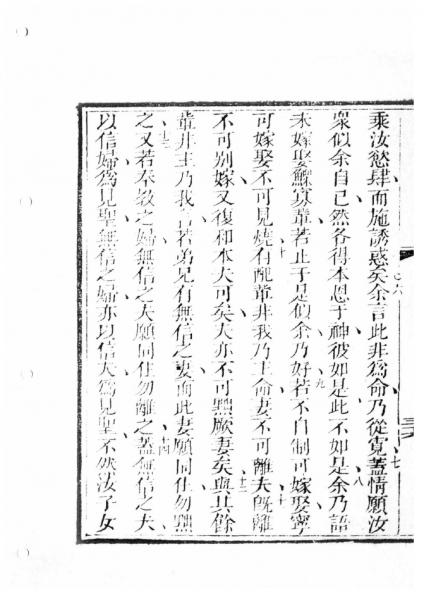 乘汝慾肆而施誘惑矣余言此非為命乃從寬蓋情願汝
七
眾似余自己然各得本恩于神彼如是此不如是余乃語
八
未嫁娶鰥寡輩若止于是似余乃好若不自制可嫁娶寧
九
可嫁娶不可見燒有配輩非我乃主命妻不可離夫既離
十
不可別嫁又復和本夫可矣夫亦不可黜厥妻矣與其餘
十二
輩非主乃我言若弟兄有無信之妻而此妻願同住勿黜
十三
之又若奉教之婦無信之夫願同住勿離之蓋無信之夫
十四
以信婦為見聖無信之婦亦以信夫為見聖不然汝子女